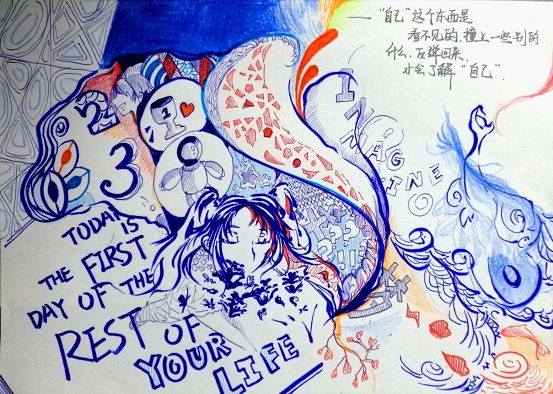 ——“自己”这个东西是
看不见的,撞上一些别的
什么,反弹回来,
才会了解“自己”.
2
3
1
IMAGINE
TODAY IS
THE FIRST
DAY OF THE
REST OF
YOUR
LIFE